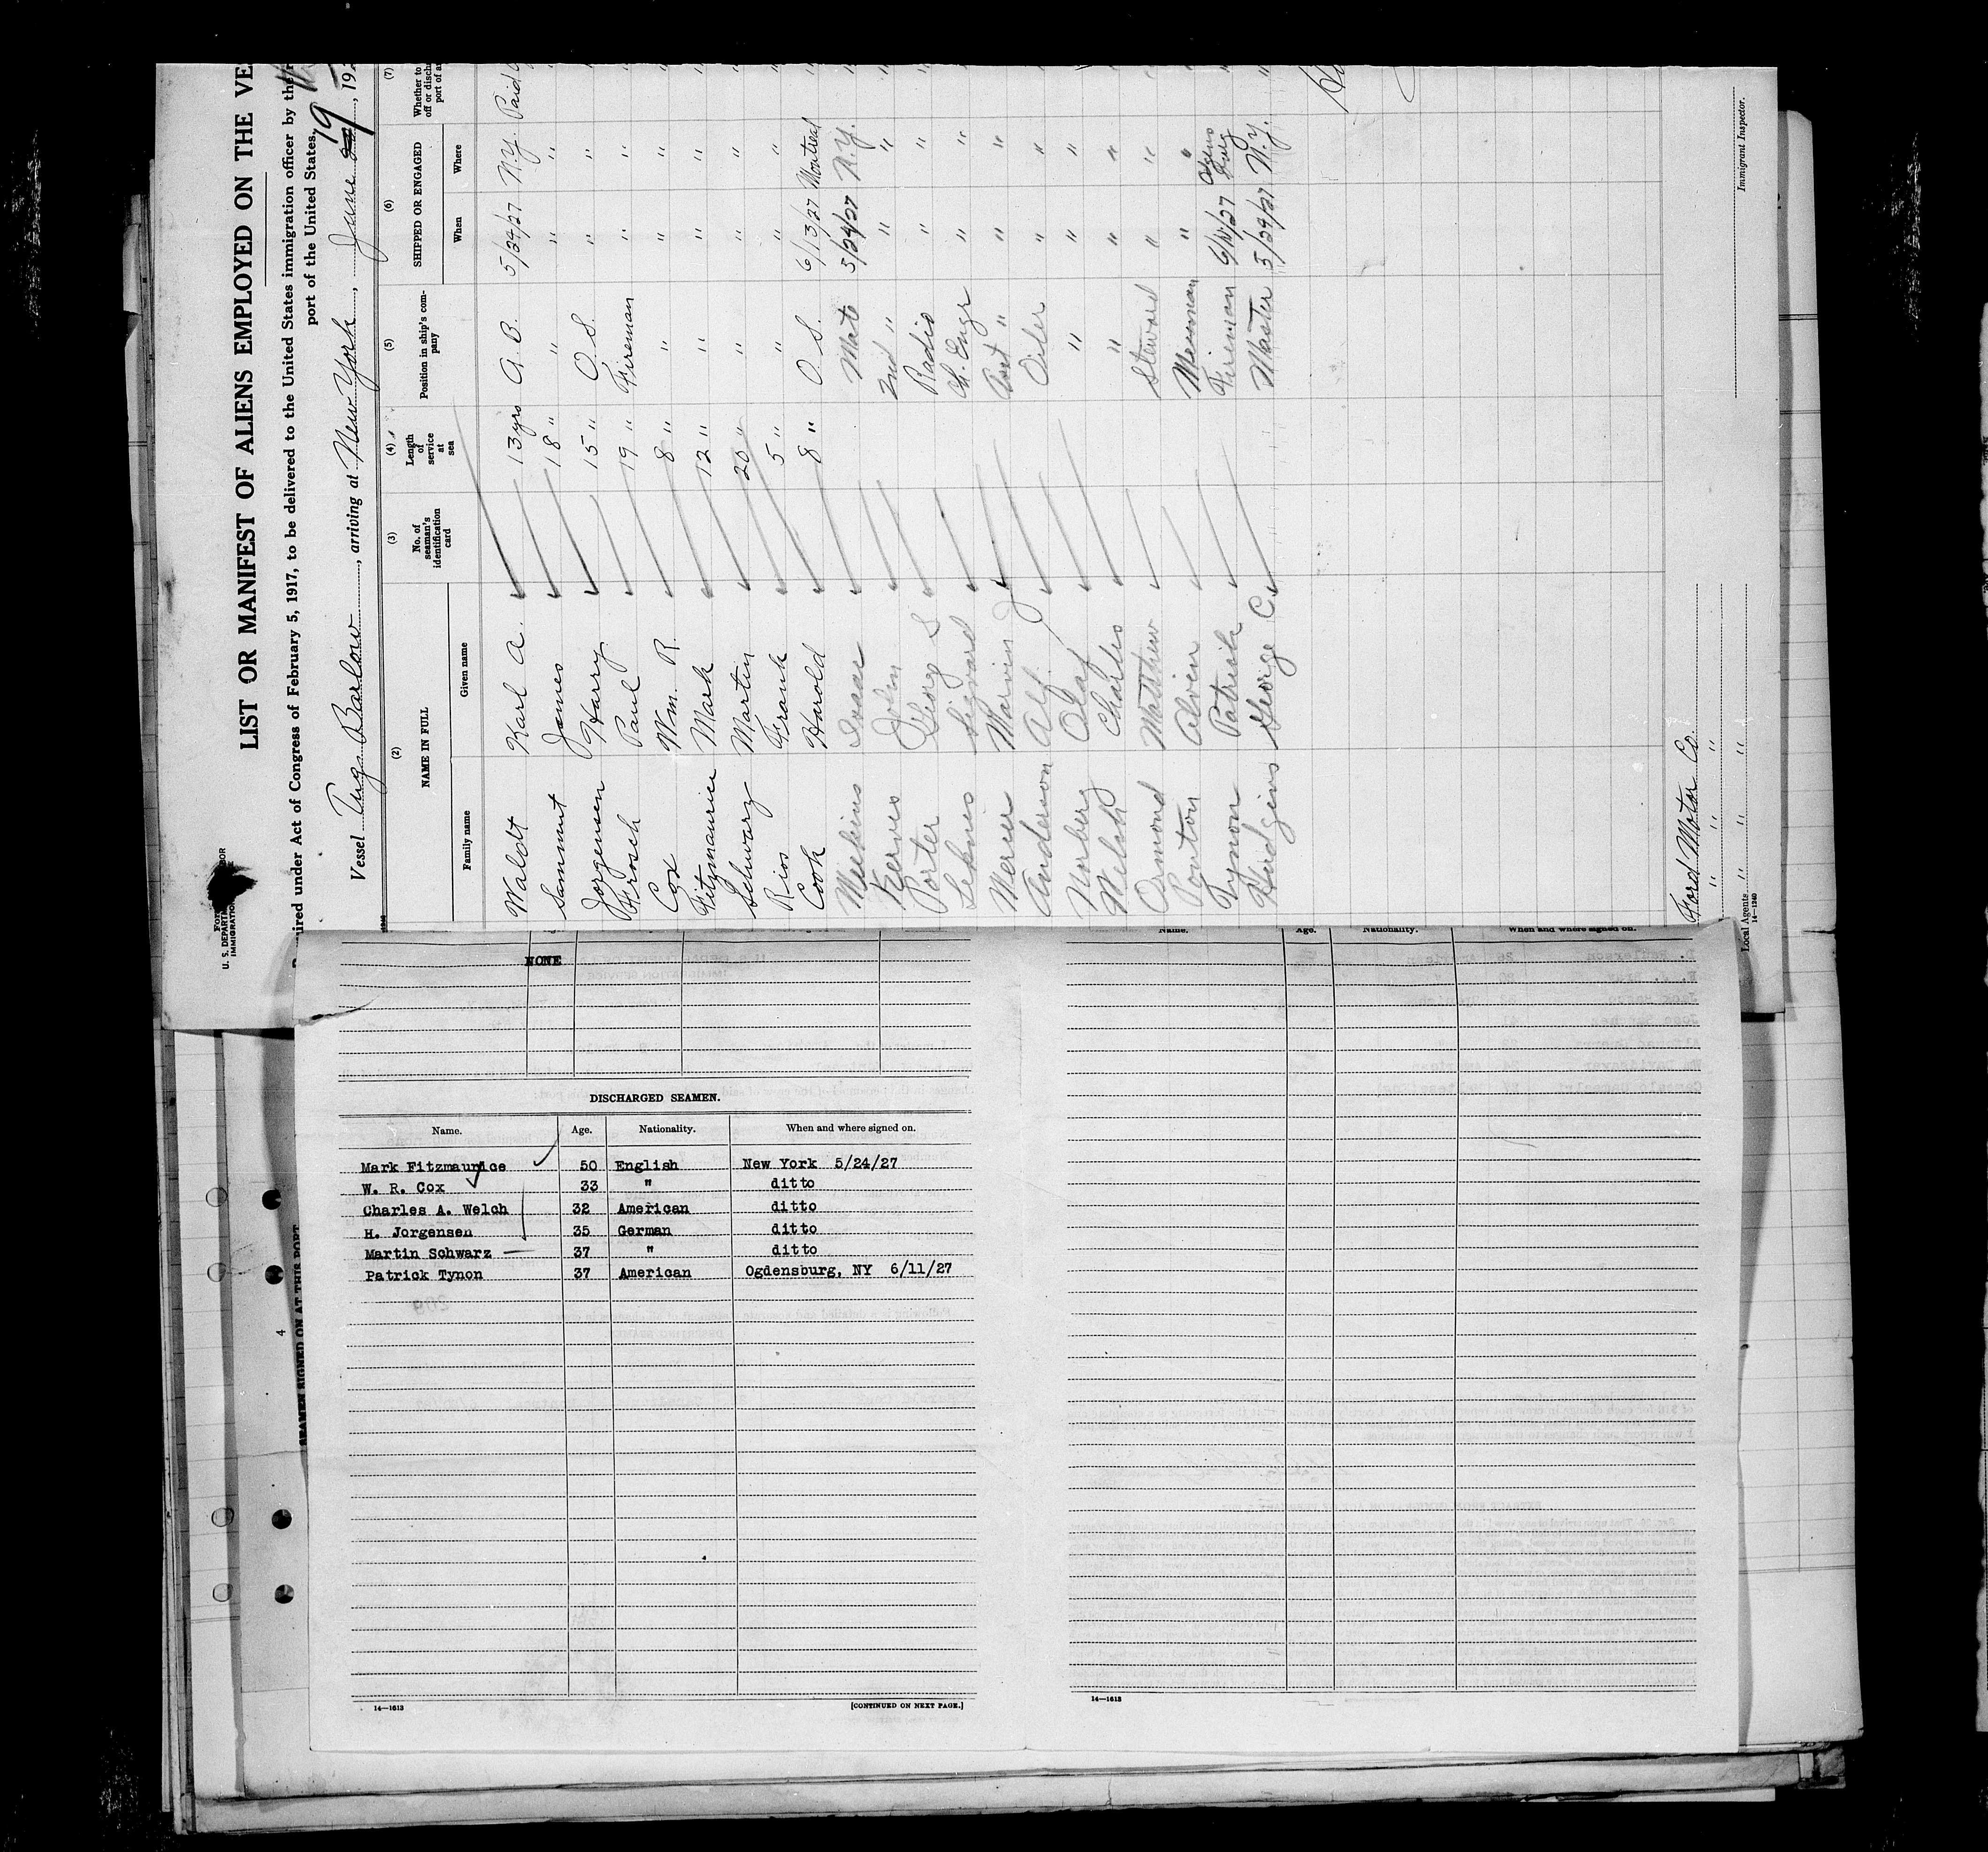 LIST OR MANIFEST OF ALIENS EMPLOYED ON THE VE
ired under Act of Congress of February 5, 1917, to be delivered to the United States immigration officer by the
port of the United States,
Vessel Tug Barlow, arriving at New York, June 19, 192
(2) (3) (4) (5) (6) (7)
NAME IN FULL
Family name Given name
No. of seaman's identification card
Length of service at sea
Position in ship's company
SHIPPED OR ENGAGED
When Where
Whether to
off or disch
port of a
Waldt Karl A. 13 yrs A. B. 5/24/27 N.Y. Paid
Sammut James 18 " " " " "
Jorgensen Harry 15 " O. S. " " "
Frosch Paul 19 " Fireman " " "
Cox Wm. R. 8 " " " " "
Fitzmaurice Mark 12 " " " " "
Schwarz Martin 20 " " " " "
Rios Frank 5 " " " " "
Cook Harold 8 " O. S. 6/13/27 Montreal "
Meekins Isaac Mate 5/24/27 N.Y. "
John 2nd " " " "
Porter George S Radio " " "
Sigvard Ch. Engr " " "
Merner Marvin J Asst " " " "
Anderson Alf. Oiler " " "
Olaf " " " "
Welch Charles " " " "
Ormond Matthew Steward " " "
Ponton Alvin Messman " " "
Tynon Patrick Fireman 6/11/27 Ogdensburg "
Hudgins George C. Master 5/24/27 N.Y. "
Ford Motor Co.
" " "
Local Agents " " "
14—1240
Immigrant Inspector.
U. S. DEPARTM
IMMIGRATION
NONE
DISCHARGED SEAMEN.
Name. Age. Nationality. When and where signed on.
Mark Fitzmaurice 50 English New York 5/24/27
W. R. Cox 33 " ditto
Charles A. Welch 32 American ditto
H. Jorgensen 35 German ditto
Martin Schwarz 37 " ditto
Patrick Tynon 37 American Ogdensburg, NY 6/11/27
14—1613 [CONTINUED ON NEXT PAGE.]
Name. Age. Nationality. When and where signed on.
14—1613
SEAMEN SIGNED ON AT THIS PORT
4